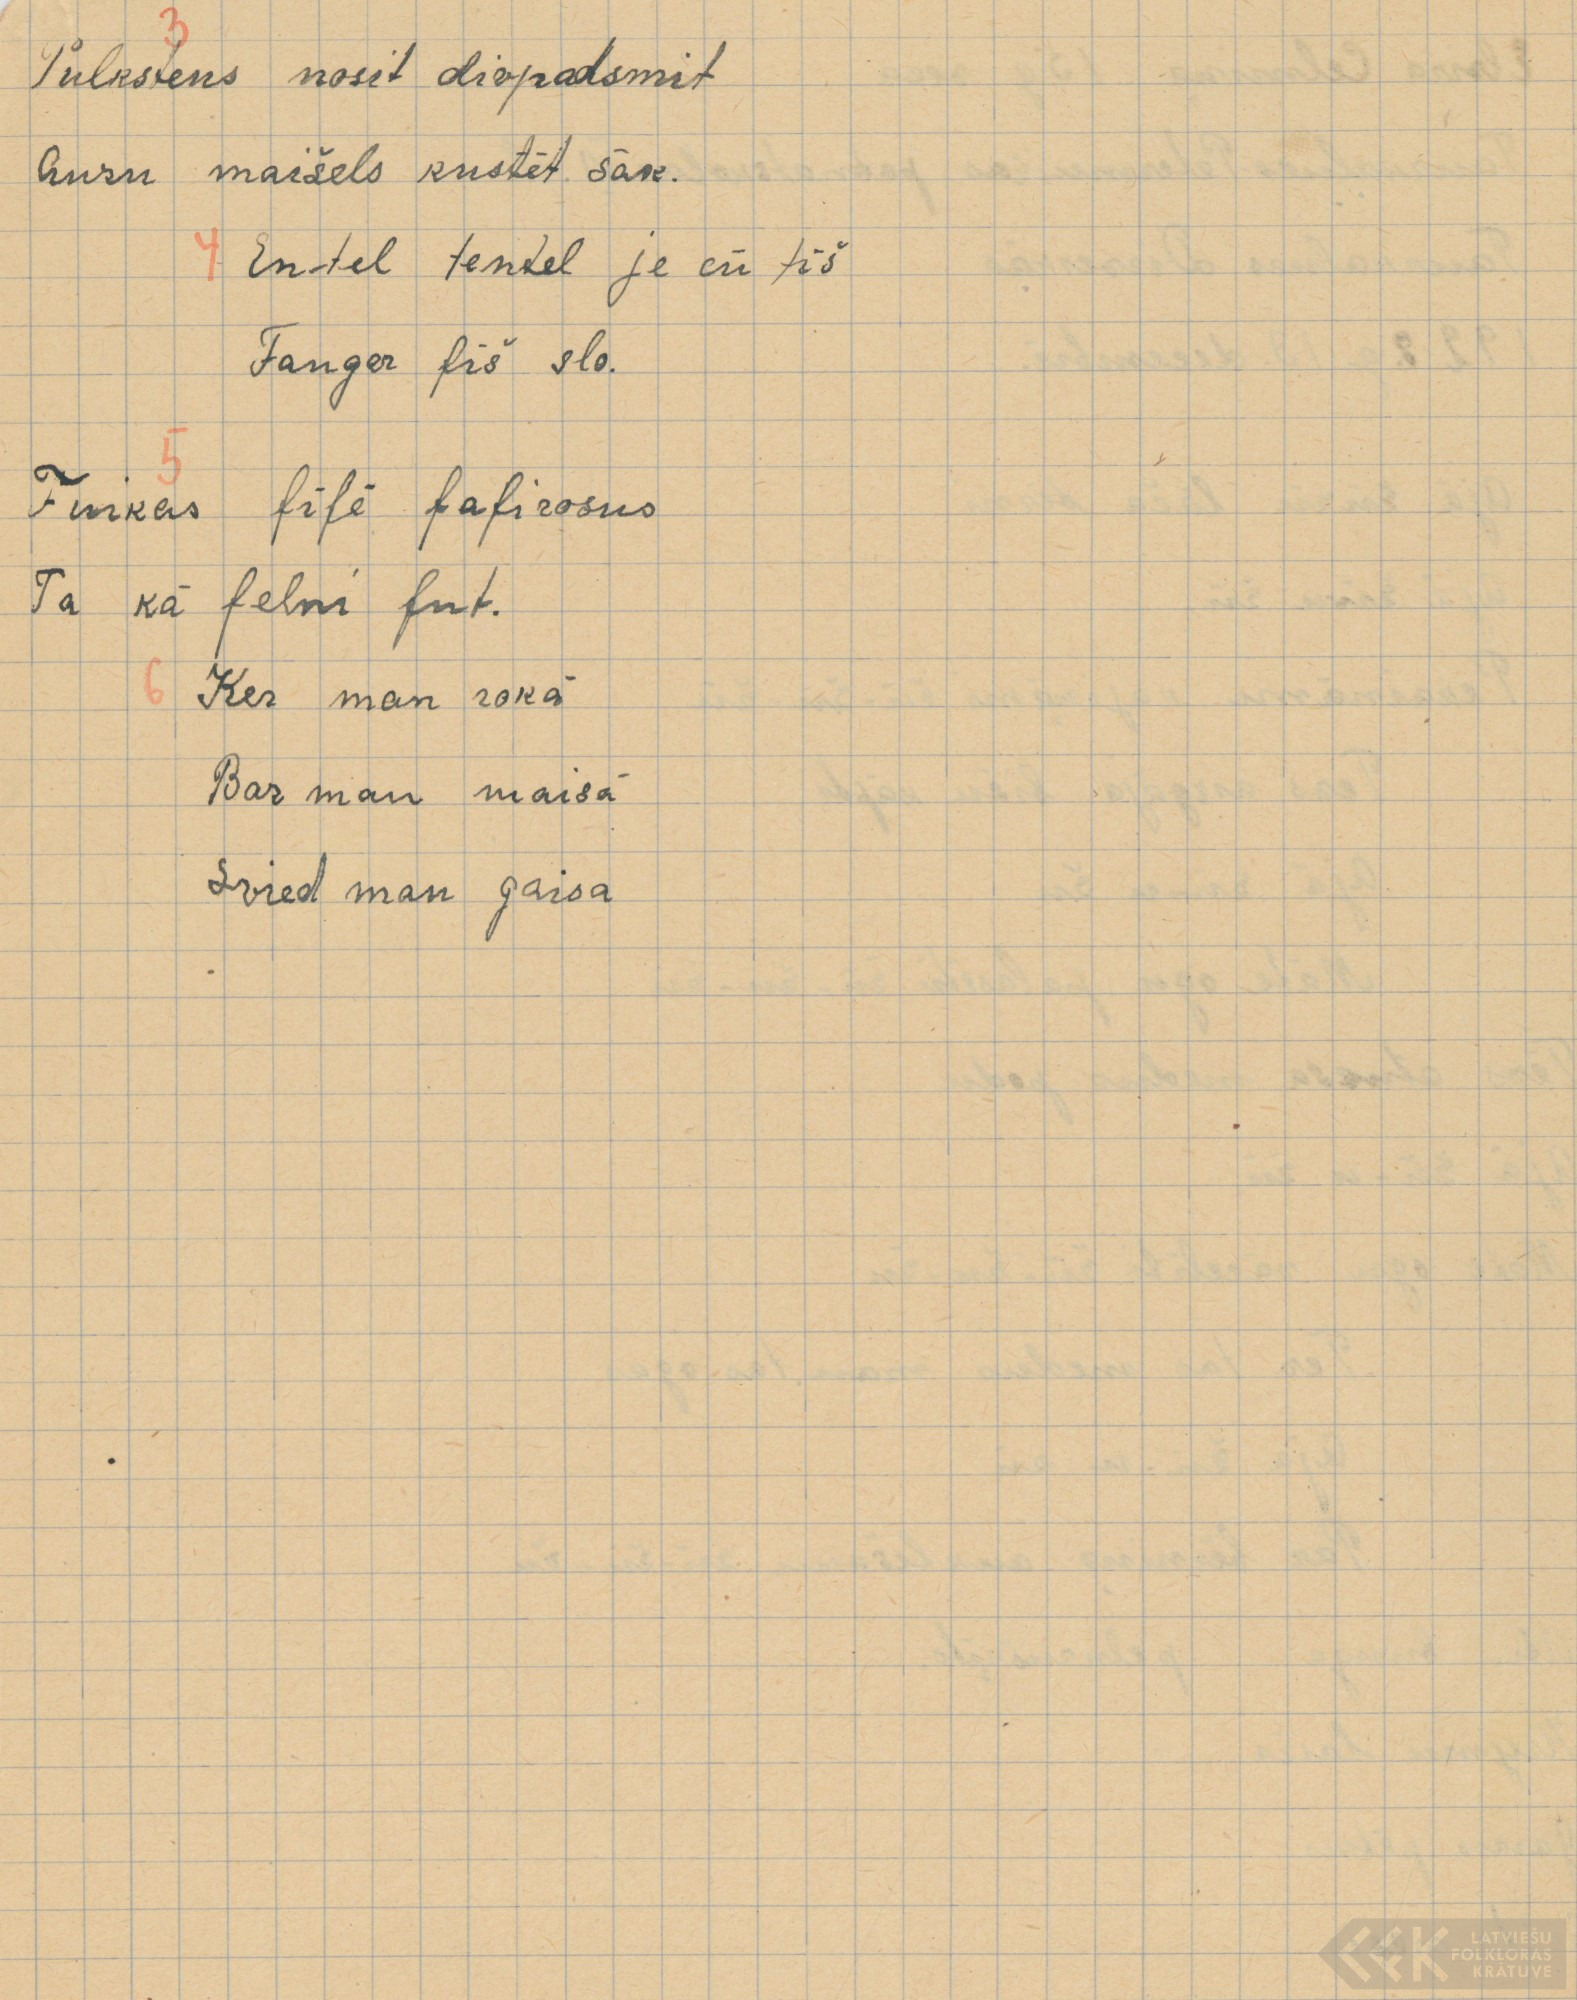 3
Pulkstens nosit divpadsmit
Auzu maišels kustēt sāk.
4 En-tel tentel je cū tiš
Fanger fiš slo.
5
Funkas fīfē fafirosus
Ta kā felni fut.
6 Ker man rokā
Bar man maisā
Svied man gaisa
LATVIEŠU
FOLKLORAS
KRĀTUVE